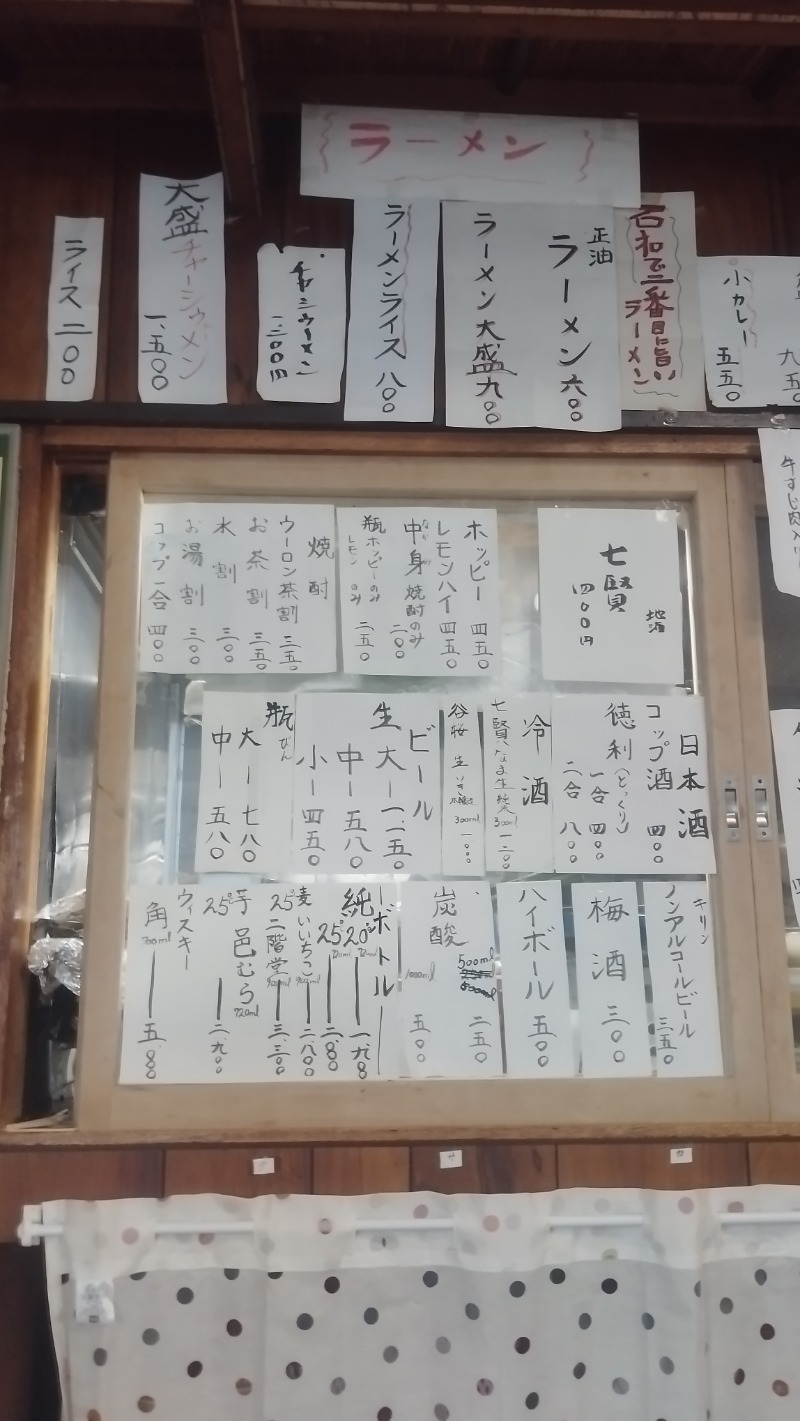 ラーメン
小カレー 五五〇
石和で二番目に旨い
ラーメン
正油
ラーメン 六〇〇
ラーメン 大盛 九〇〇
ラーメンライス 八〇〇
チャーシューメン
一、三〇〇円
大盛チャーシューメン
一、五〇〇
ライス 二〇〇
牛すじ肉入り
地酒
七賢
四〇〇円
ホッピー 四五〇
レモンハイ 四五〇
中身焼酎のみ 二〇〇
瓶ホッピーのみ 二五〇
レモンのみ
焼酎
ウーロン茶割 三五〇
お茶割 三五〇
水割 三〇〇
お湯割 三〇〇
コップ一合 四〇〇
日本酒
コップ酒 四〇〇
徳利(とっくり)
一合 四〇〇
二合 八〇〇
冷酒
七賢 なま生 純米 300ml 一二〇〇
谷桜 生 300ml 一、〇〇〇
ビール
生 大ー一、一五〇
中ー五八〇
小ー四五〇
瓶びん
大ー七八〇
中ー五八〇
キリン
ノンアルコールビール 三五〇
梅酒 三〇〇
ハイボール 五〇〇
炭酸
500ml 二五〇
1000ml 五〇〇
ーボトルー
純 20° 720ml 一、九八〇
25° 720ml 二、八〇〇
麦 いいちこ 900ml 二、八〇〇
25° 二階堂 900ml 三、三〇〇
芋 邑むら 720ml
25° 二、九〇〇
ウィスキー
角 700ml 五、八〇〇